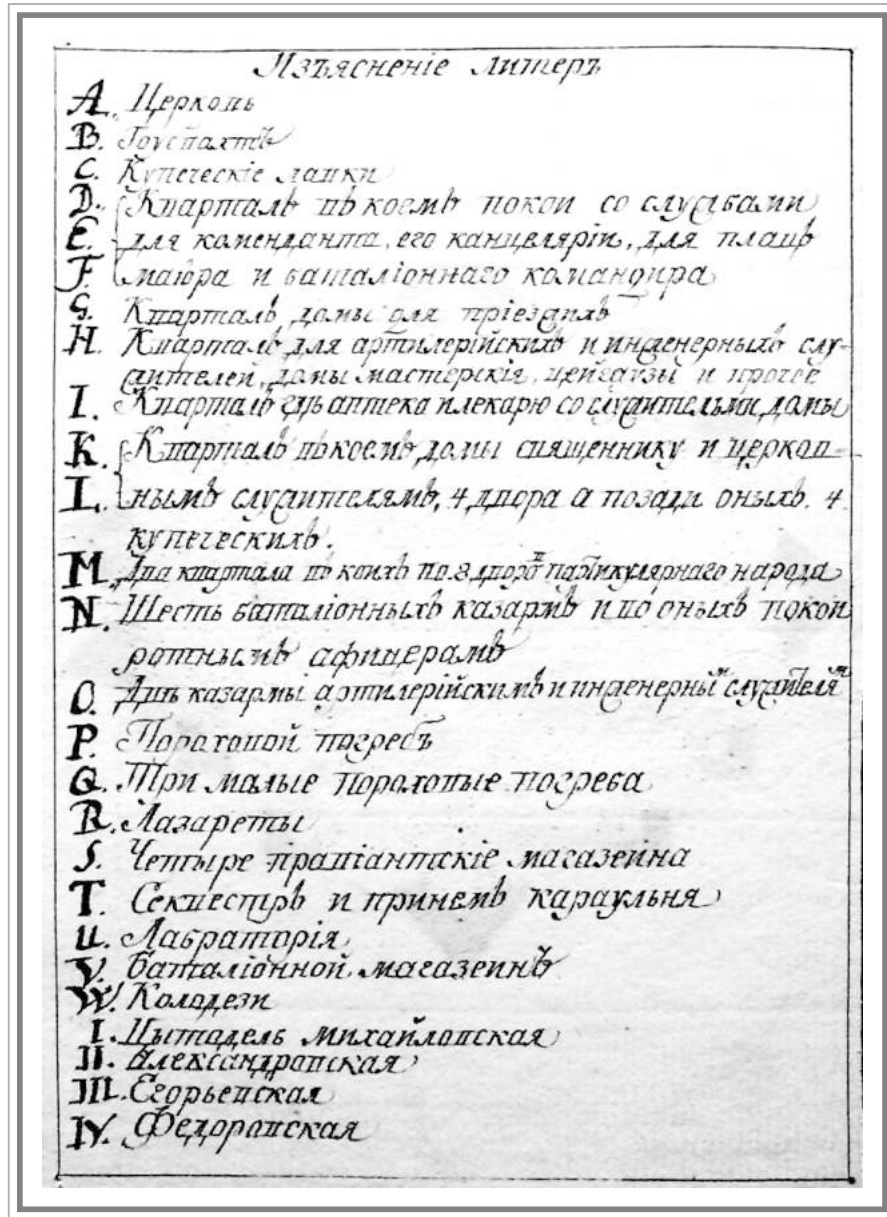 Изъясненіе литеръ
A. Церковь
B. Гоуптвахтъ
C. Купеческіе лавки
D. Кварталъ въ коемъ покои со службами
E. для коменданта, его канцеляріи, для плацъ
F. маіора и баталіоннаго командира
G. Кварталъ домы для пріезжихъ
H. Кварталъ для артилерійскихъ и инженерныхъ слу-
жителей, домы мастерскія, цейгаузы и прочее
I. Кварталъ гдѣ аптека и лекарю со служительми домы
K. Кварталъ въ коемъ домы священнику и церков-
L. нымъ служителямъ, 4 двора а позади оныхъ 4.
купеческихъ.
M. Два квартала въ коихъ по 8 дворовъ партикулярнаго народа
N. Шесть баталіонныхъ казармъ и во оныхъ покои
ротнымъ афицерамъ
O. Двѣ казармы артилерійскимъ и инженернымъ служителям
P. Пороховой погребъ
Q. Три малые пороховые погреба
R. Лазареты
S. Четыре правіантскіе магазейна
T. Секвестръ и при немъ караульня
U. Лабраторія
V. Баталіонной магазеинъ
W. Колодези
I. Цытадель михайловская
II. Александровская
III. Егорьевская
IV. Федоровская